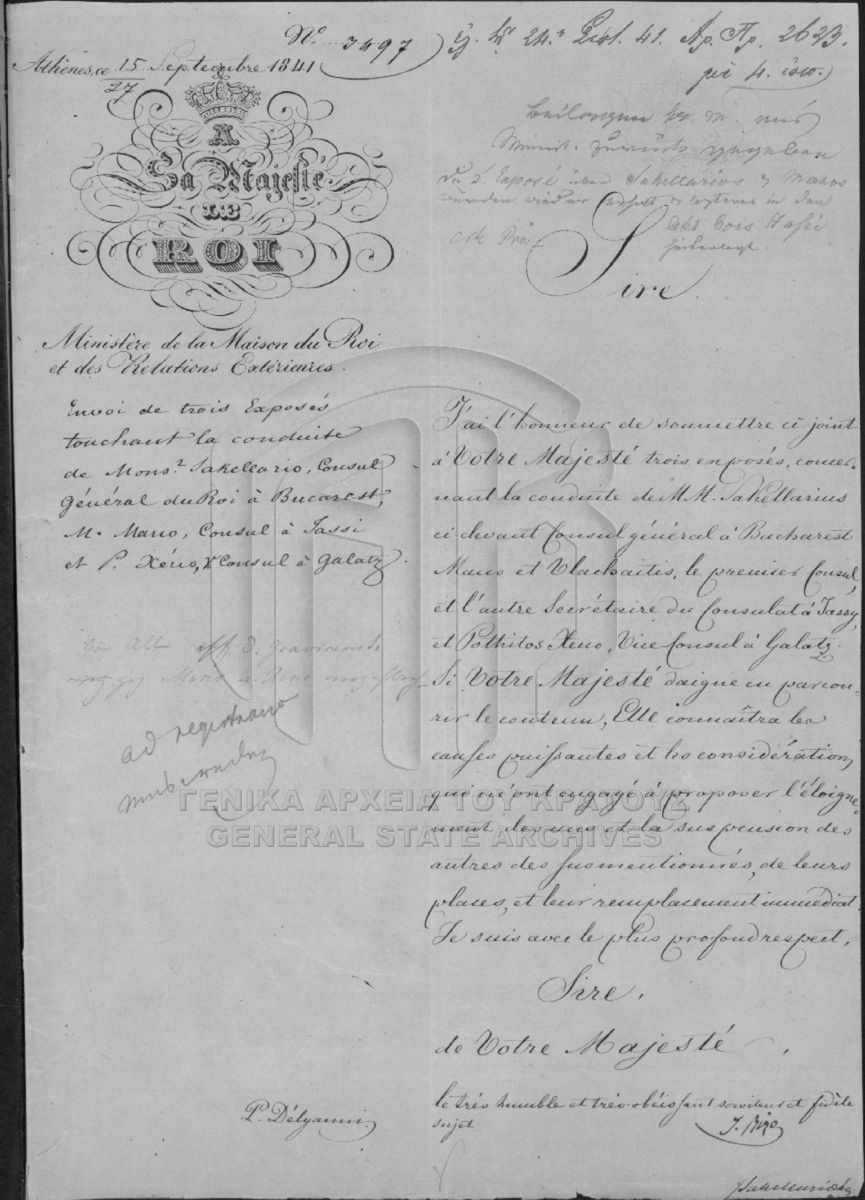 No. 3497
Athènes, ce 15/27 Septembre 1841
24. 41. 2623.
A
Sa Majesté
LE
ROI
Ministère de la Maison du Roi
et des Relations Extérieures.
Envoi de trois Exposés
touchant la conduite
de Monsr. Sakellario, Consul
Général du Roi à Bucarest,
M. Mano, Consul à Jassi
et P. Xéno, V. Consul à Galatz.
ad registrano
P. Délyanni
Exposé Sakellarius & Manos
Sire
J'ai l'honneur de soumettre ci joint
à Votre Majesté trois exposés, concer-
nant la conduite de MM. Sakellarius
ci devant Consul général à Bucharest
Mano et Vlachaitis, le premier Consul,
et l'autre Secrétaire du Consulat à Jassy,
et Pothitos Xeno, Vice Consul à Galatz.
Si Votre Majesté daigne en parcou-
rir le contenu, Elle connaîtra les
causes puissantes et les considérations,
qui m'ont engagé à proposer l'éloigne-
ment des uns et la suspension des
autres des susmentionnés, de leurs
places, et leur remplacement immédiat.
Je suis avec le plus profond respect,
Sire,
de Votre Majesté,
le très humble et très-obéissant serviteur et fidèle
sujet
ΓΕΝΙΚΑ ΑΡΧΕΙΑ ΤΟΥ ΚΡΑΤΟΥΣ
GENERAL STATE ARCHIVES